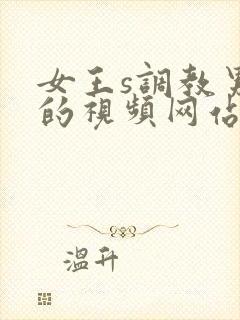 女王s調教男
的視頻网佔
溫升